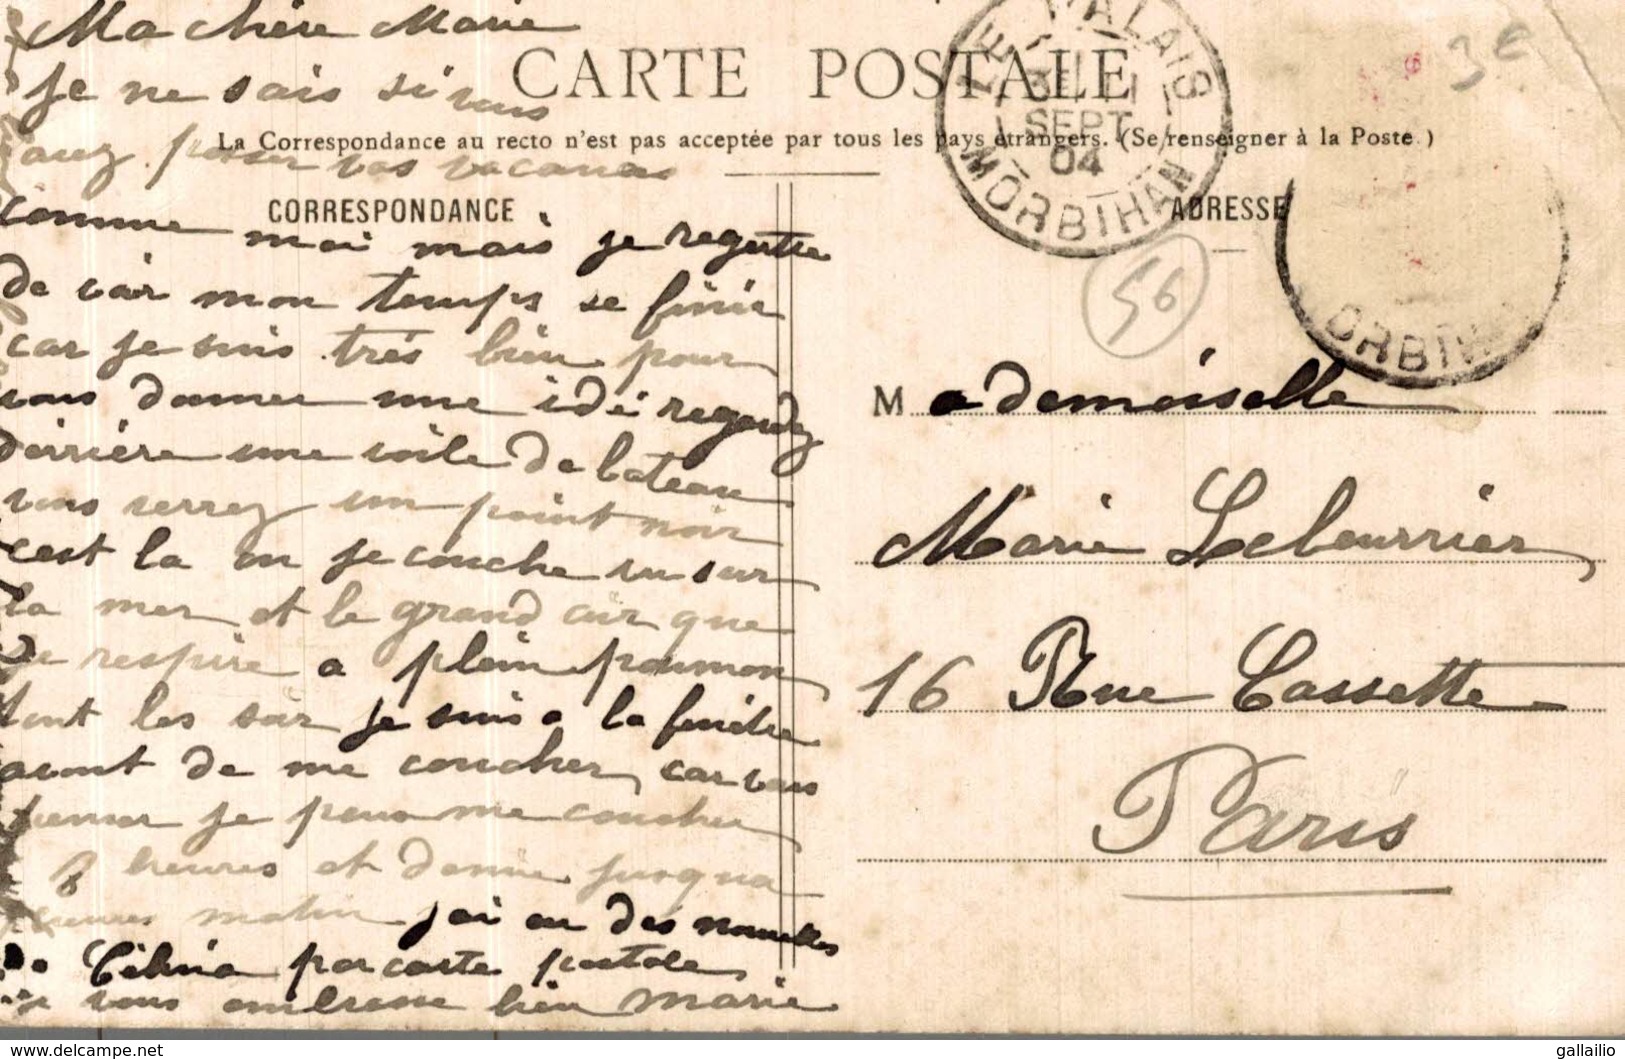 Ma chère Marie
CARTE POSTALE
je ne sais si vous
La Correspondance au recto n'est pas acceptée par tous les pays étrangers. (Se renseigner à la Poste.)
avez passer vos vacances
CORRESPONDANCE
ADRESSE
comme moi mais je regrette
de voir mon temps se finir
car je suis très bien pour
vous donner une idé regardez
derrière une voile de bateau
vous verrez un point noir
c'est la ou je couche vu sur
la mer et le grand air que
je respire a plein poumon
tout les soir je suis a la fenêtre
avant de me coucher car vous
penser je peux me coucher
8 heures et demie jusqua
heures matin j'ai eu des nouvelles
de par carte postale
je vous embrasse bien Marie
LE PALAIS
SEPT
04
MORBIHAN
ORBIH
56
3€
Mademoiselle
Marie Lebourrier
16 Rue Cassette
Paris
delcampe.net
gallailio